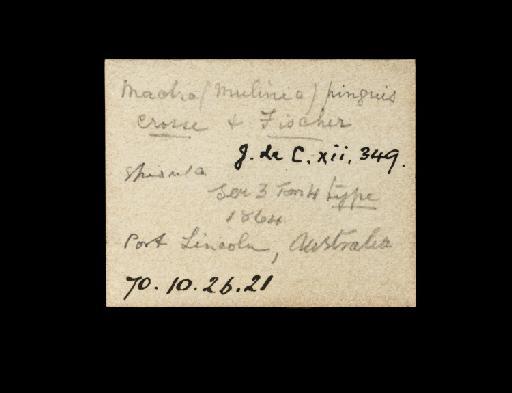 Mactra (Mulinia) pinguis
Crosse & Fischer
J. de C. xii, 349.
Spisula
Ser 3 Tom 4 type
1864
Port Lincoln, Australia
70.10.26.21